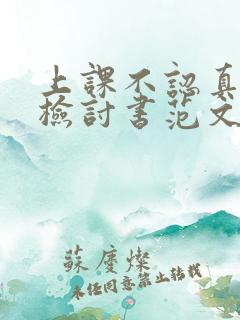 上課不認真
檢討書范文
蘇慶燦
未任同意禁止轉載